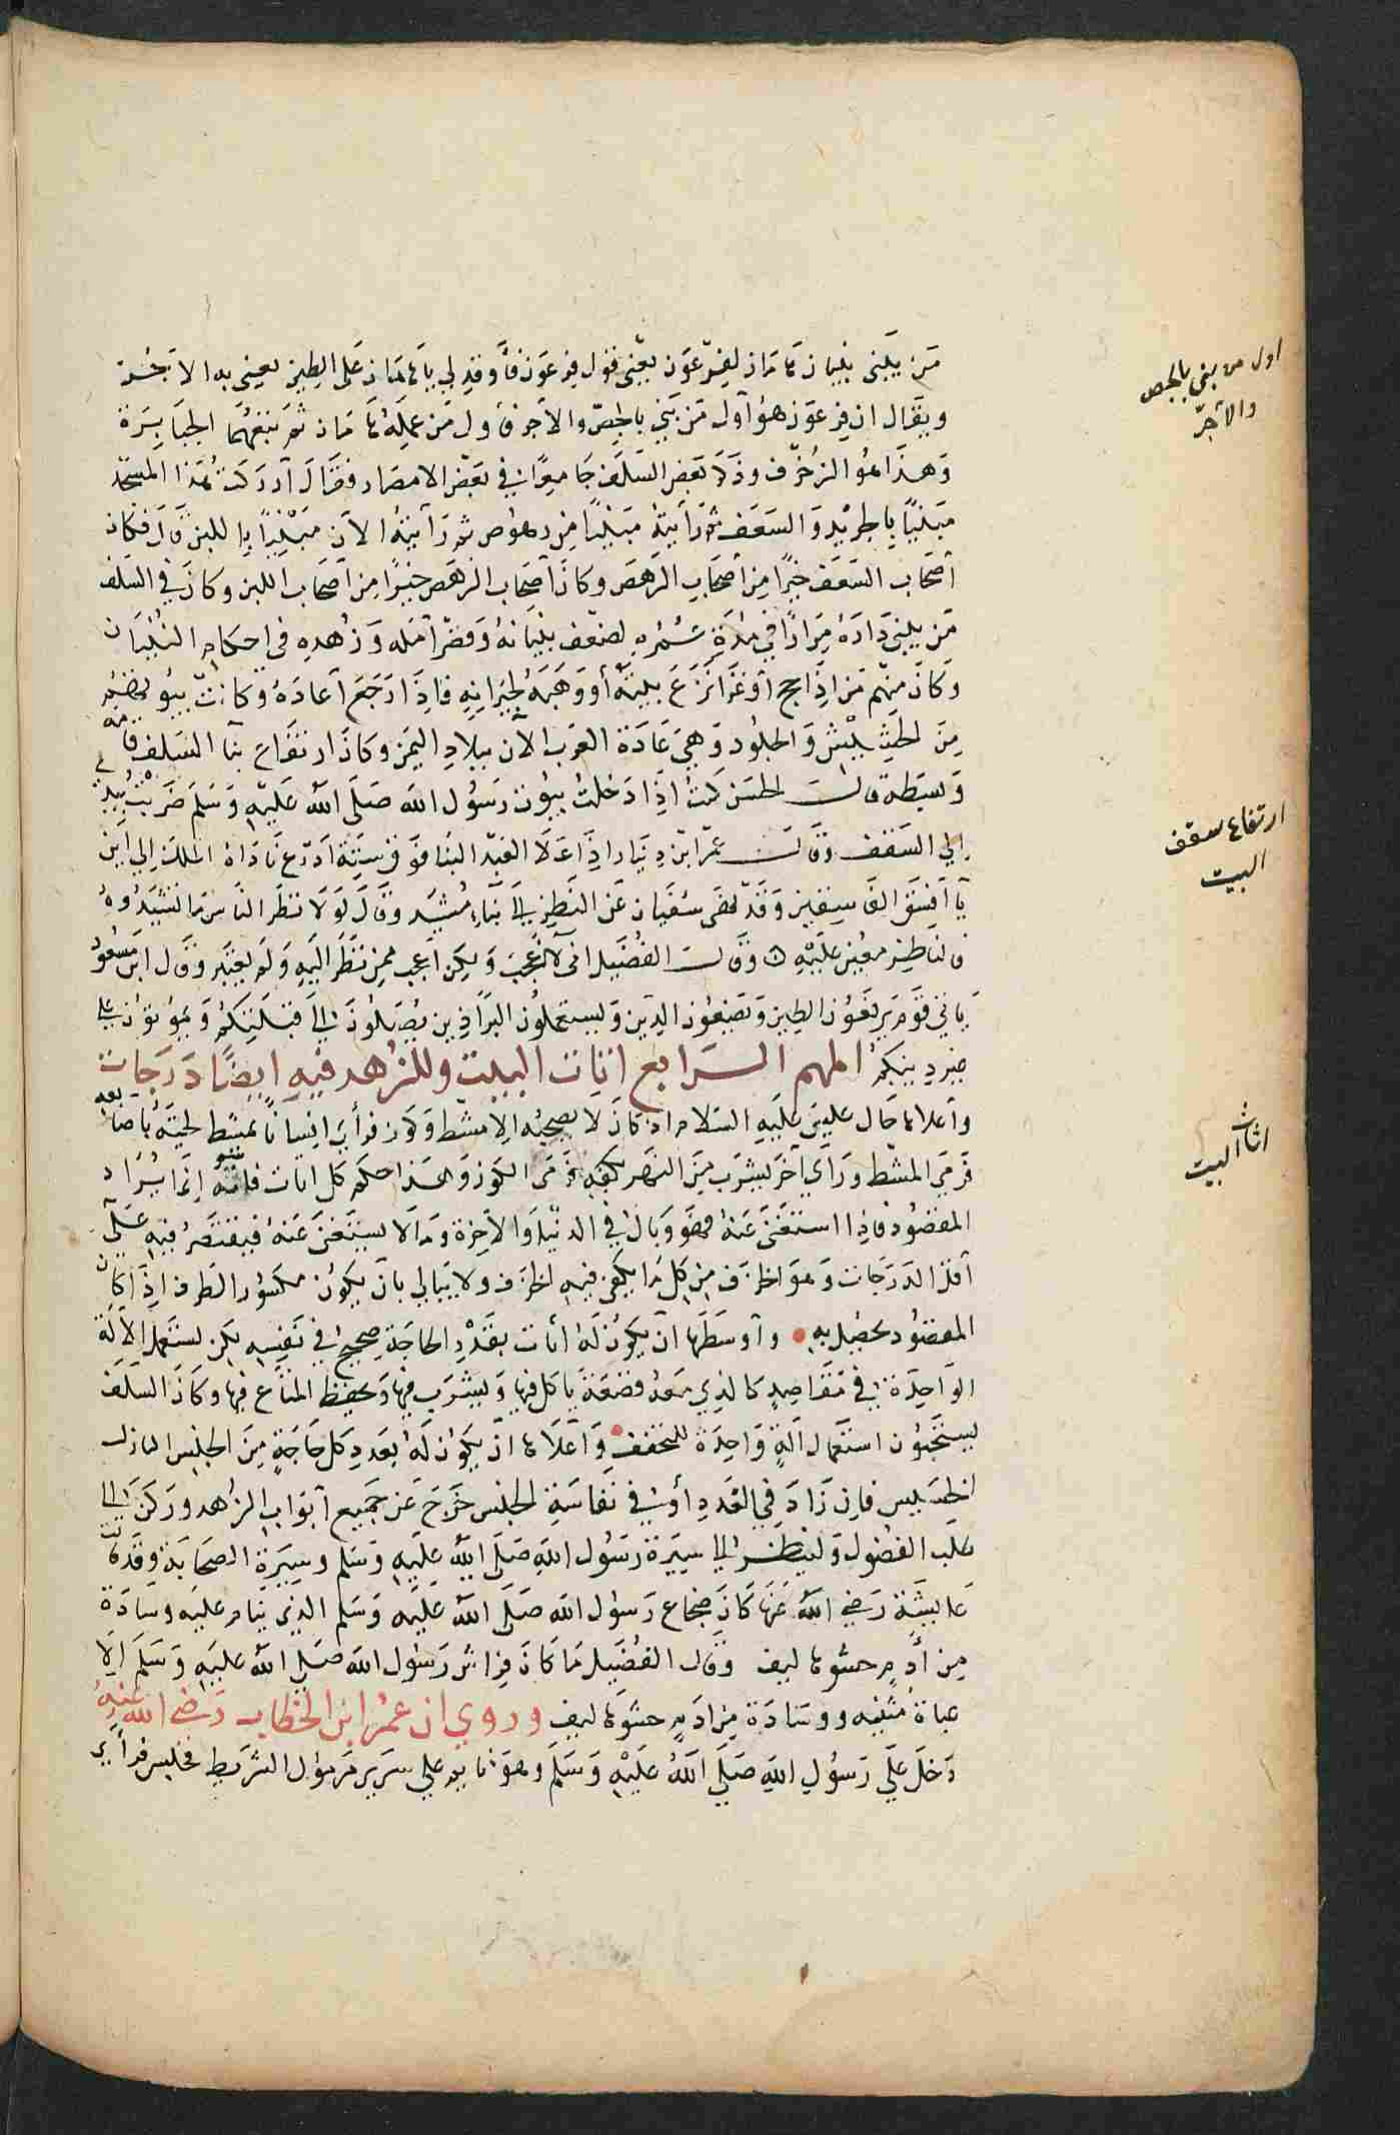 من يبني بنيان هامان لفرعون يعني قول فرعون فأوقد لي يا هامان على الطين يعني به الاجر
ويقال ان فرعون هو أول من بنى بالجص والاجر فاول من عمله هامان ثم تبعهما الجبابرة
وهذا هو الزخرف وذكر بعض السلف جامعا في بعض الامصار فقال أدركت هذا المسجد
مبنيا بالجريد والسعف ثم رأيته مبنيا من رهوص ثم رأيته الآن مبنيا باللبن قال فكان
أصحاب السعف خيرا من أصحاب الرهص وكان أصحاب الرهص خيرا من أصحاب اللبن وكان في السلف
من يبني داره مرارا في مدة عمره لضعف بنيانه وقصر أمله وزهده في احكام البنيان
وكان منهم من إذا حج أو غزا نزع بيته أو وهبه لجيرانه فاذا رجع أعاده وكانت بيوتهم
من الحشيش والجلود وهي عادة العرب الآن ببلاد اليمن وكان ارتفاع بنا السلف قامة
وبسطة قال الحسن كنت إذا دخلت بيوت رسول الله صلى الله عليه وسلم ضربت بيدي
إلى السقف وقال عمر ابن دينار اذا علا العبد البنا فوق ستة أذرع ناداه الملك إلى أين
يا أفسق الفاسقين وقد نهى سفيان عن النظر إلى بناء مشيد وقال لولا نظر الناس ما شيدوه
فالناظر معين عليه وقال الفضيل اني لا أعجب ولكن أعجب ممن نظر اليه ولم يعتبر وقال ابن مسعود
يأتي قوم يرفعون الطين ويضعون الدين ويستعملون البراذين يصلون إلى قبلتكم ويموتون على
غير دينكم المهم الرابع اثاث البيت وللزهد فيه ايضا درجات
وأعلاها حال عيسى عليه السلام اذ كان لا يصحبه الا مشط وكوز فرأى انسانا يمشط لحيته بأصابعه
فرمى المشط ورأى آخر يشرب من النهر بكفيه فرمى الكوز وهذا حكم كل اثاث فانه إنما يراد
المقصود فاذا استغنى عنه فهو وبال في الدنيا والآخرة وما لا يستغنى عنه فيقتصر فيه على
أقل الدرجات وهو الخزف من كل ما يكفي فيه الخزف ولا يبالي بان يكون مكسور الطرف إذا كان
المقصود يحصل به وأوسطها أن يكون له أثاث بقدر الحاجة صحيح في نفسه لكن يستعمل الآلة
الواحدة في مقاصد كالذي معه قصعة يأكل فيها ويشرب فيها ويحفظ المتاع فيها وكان السلف
يستحبون استعمال آلة واحدة للتخفيف وأعلاها أن يكون له بعدد كل حاجة من الجنس النازل
الخسيس فان زاد في العدد أو في نفاسة الجنس خرج عن جميع أبواب الزهد وركن إلى
طلب الفضول ولينظر الى سيرة رسول الله صلى الله عليه وسلم وسيرة الصحابة وقد قالت
عايشة رضي الله عنها كان ضجاع رسول الله صلى الله عليه وسلم الذي ينام عليه وسادة
من أدم حشوها ليف وقال الفضيل ما كان فراش رسول الله صلى الله عليه وسلم الا
عباة مثنية ووسادة من ادم حشوها ليف وروي ان عمر ابن الخطاب رضي الله عنه
دخل على رسول الله صلى الله عليه وسلم وهو نايم على سرير مرمول الشريط فجلس فرأى
اول من بنى بالجص
والآجر
ارتفاع سقف
البيت
اثاث
البيت